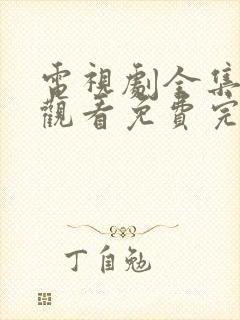 電視劇全集
觀看免費完
丁自勉